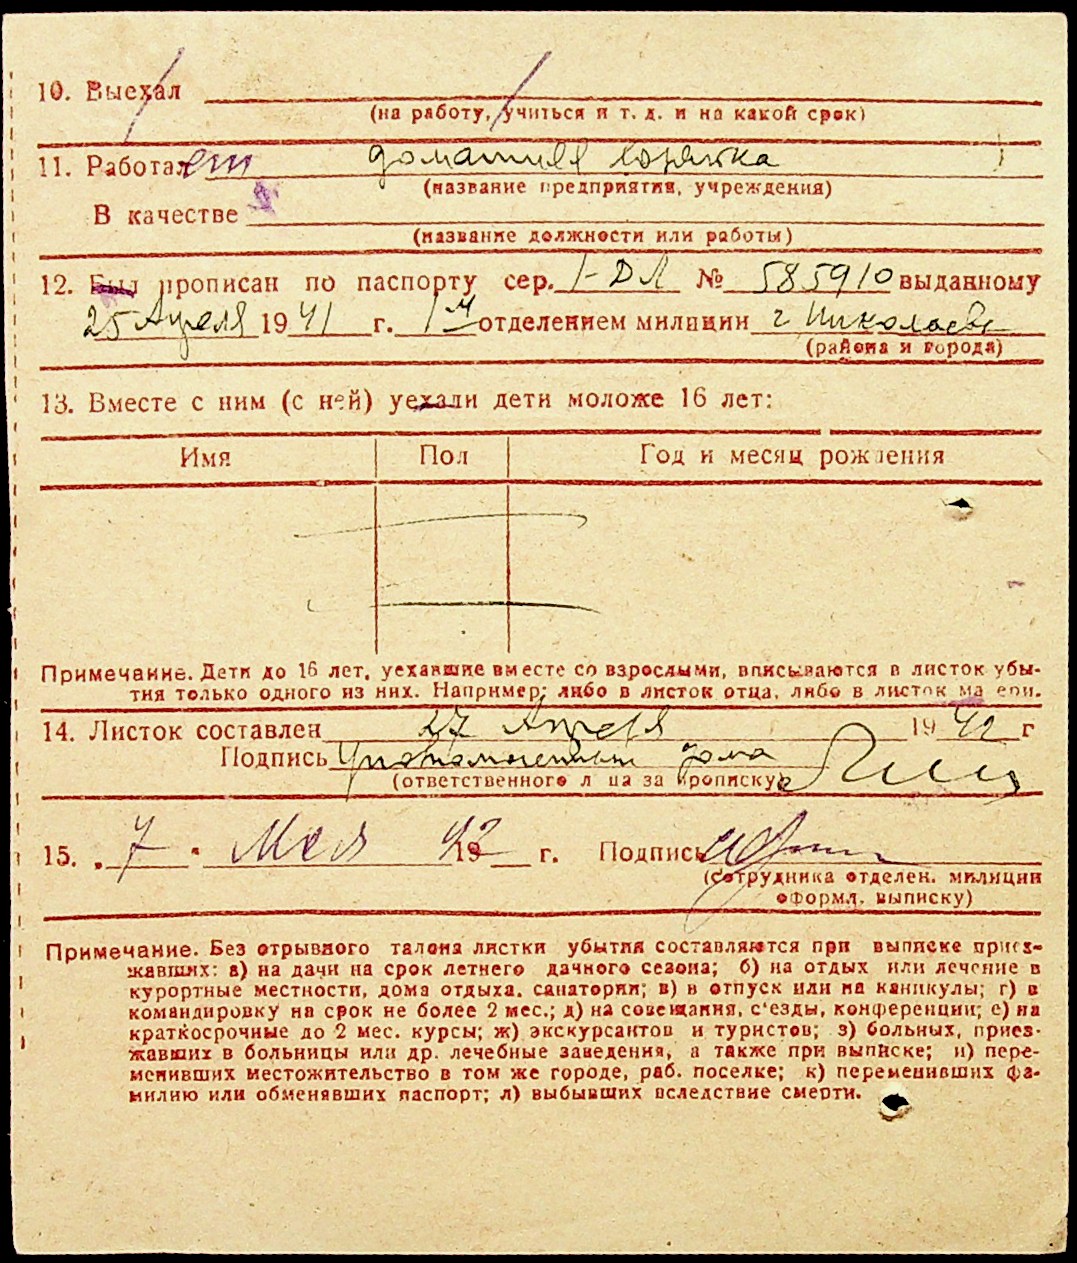 10. Выехал
(на работу, учиться и т. д. и на какой срок)
11. Работает домашняя хозяйка
(название предприятия, учреждения)
В качестве
(название должности или работы)
12. Был прописан по паспорту сер. I-ДЛ № 585910 выданному
25 Апреля 1941 г. 1м отделением милиции г Николаева
(района и города)
13. Вместе с ним (с ней) уехали дети моложе 16 лет:
Имя Пол Год и месяц рождения
Примечание. Дети до 16 лет, уехавшие вместе со взрослыми, вписываются в листок убы-
тия только одного из них. Например: либо в листок отца, либо в листок матери.
14. Листок составлен 27 Апреля 1942 г
Подпись Уполномоченный дома
(ответственного лица за прописку)
15. „7" Мая 1942 г. Подпись
(сотрудника отделен. милиции
оформл. выписку)
Примечание. Без отрывного талона листки убытия составляются при выписке приез-
жавших: а) на дачи на срок летнего дачного сезона; б) на отдых или лечение в
курортные местности, дома отдыха, санатории; в) в отпуск или на каникулы; г) в
командировку на срок не более 2 мес.; д) на совещания, с'езды, конференции; е) на
краткосрочные до 2 мес. курсы; ж) экскурсантов и туристов; з) больных, приез-
жавших в больницы или др. лечебные заведения, а также при выписке; и) пере-
менивших местожительство в том же городе, раб. поселке; к) переменивших фа-
милию или обменявших паспорт; л) выбывших вследствие смерти.